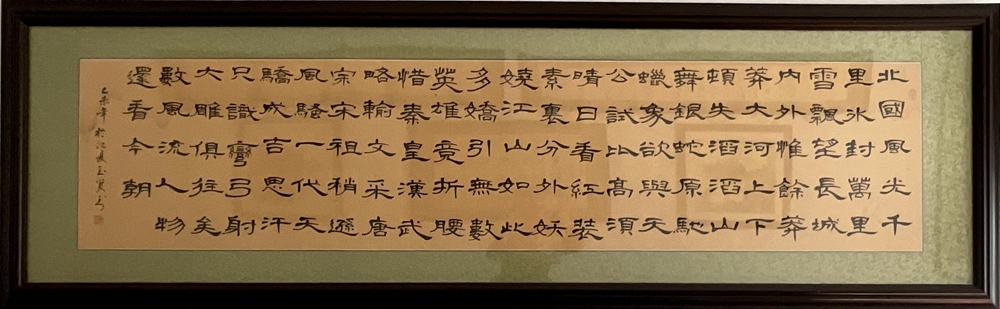 北國風光千
里冰封萬里
雪飄望長城
内外惟餘莽
莽大河上下
頓失滔滔山
舞銀蛇原馳
蠟象欲與天
公試比髙須
晴日看紅装
素裹分外妖
嬈江山如此
多嬌引無數
英雄竟折腰
惜秦皇漢武
略輸文采唐
宗宋祖稍遜
風騷一代天
驕成吉思汗
只識彎弓射
大雕俱往矣
數風流人物
還看今朝
乙未年於江夏玉